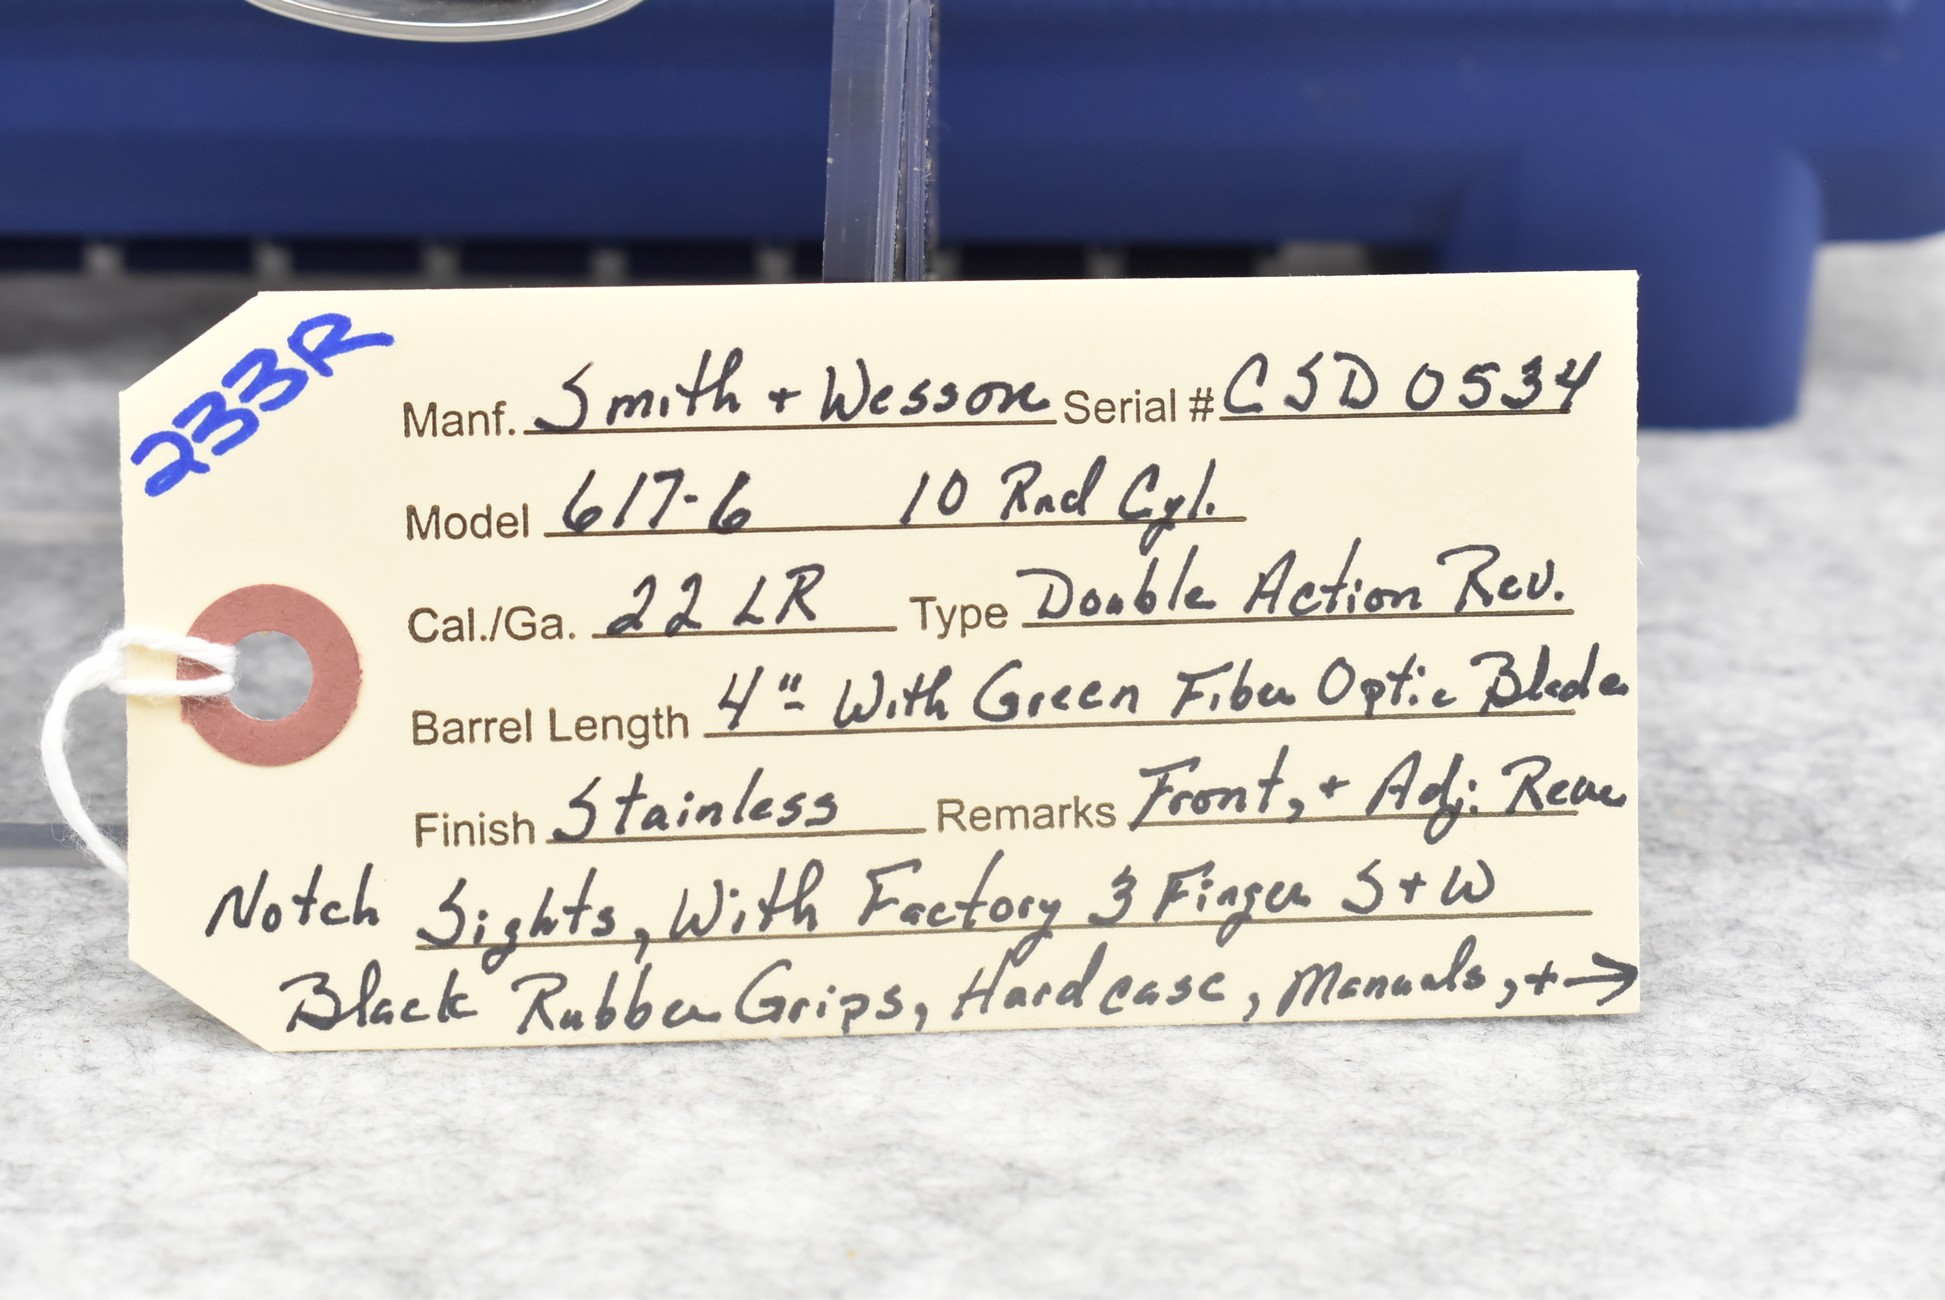 233R
Manf. Smith + Wesson Serial # CSD 0534
Model 617-6 10 Rnd Cyl.
Cal./Ga. 22 LR Type Double Action Rev.
Barrel Length 4" With Green Fiber Optic Blade
Finish Stainless Remarks Front, + Adj: Rear
Notch Sights, With Factory 3 Finger S+W
Black Rubber Grips, Hardcase, Manuals, + →